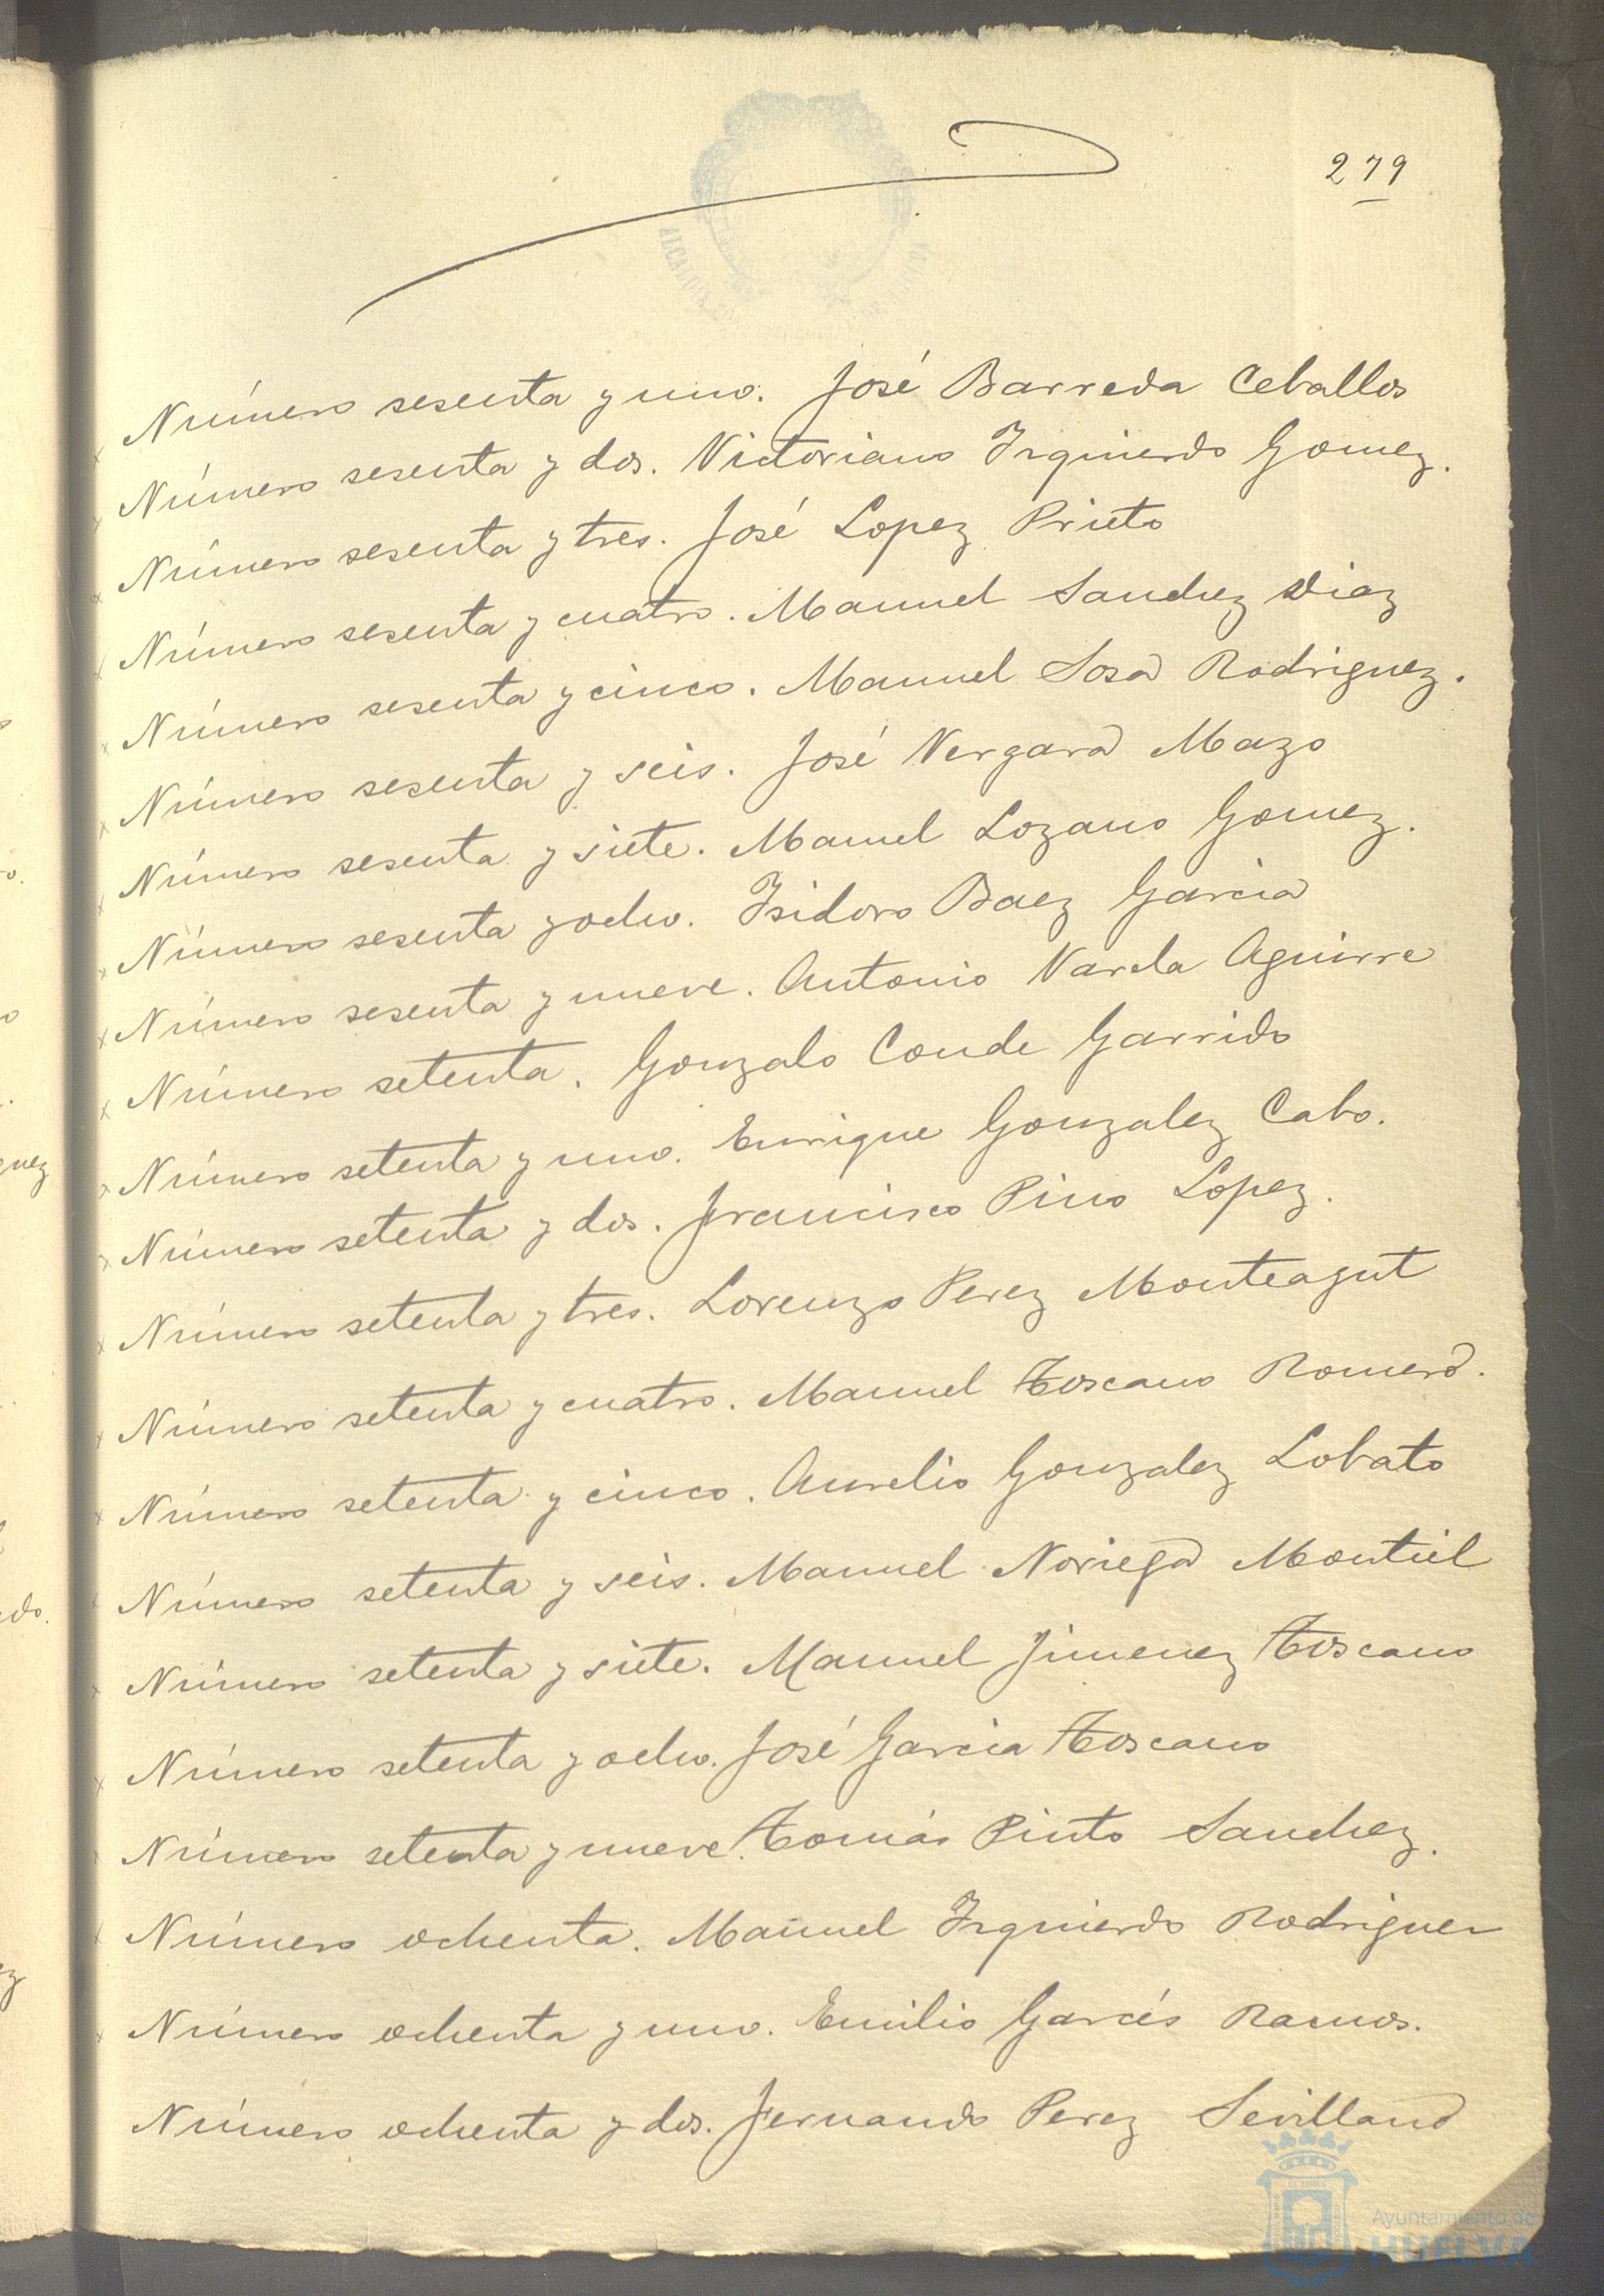 279
Número sesenta y uno. José Barreda Ceballos
Número sesenta y dos. Victoriano Izquierdo Gomez.
Número sesenta y tres. José Lopez Prieto
Número sesenta y cuatro. Manuel Sanchez Diaz
Número sesenta y cinco. Manuel Sosa Rodriguez.
Número sesenta y seis. José Vergara Mazo
Número sesenta y siete. Manuel Lozano Gomez.
Número sesenta y ocho. Isidoro Baez Garcia
Número sesenta y nueve. Antonio Varela Aguirre
Número setenta. Gonzalo Conde Garrido
Número setenta y uno. Enrique Gonzalez Cabo.
Número setenta y dos. Francisco Pino Lopez.
Número setenta y tres. Lorenzo Perez Monteagut
Número setenta y cuatro. Manuel Toscano Romero.
Número setenta y cinco. Aurelio Gonzalez Lobato
Número setenta y seis. Manuel Noriega Montiel
Número setenta y siete. Manuel Jimenez Toscano
Número setenta y ocho. José Garcia Toscano
Número setenta y nueve. Tomás Pinto Sanchez.
Número ochenta. Manuel Izquierdo Rodriguez
Número ochenta y uno. Emilio Garcés Ramos.
Número ochenta y dos. Fernando Perez Sevillano
Ayuntamiento de
HUELVA